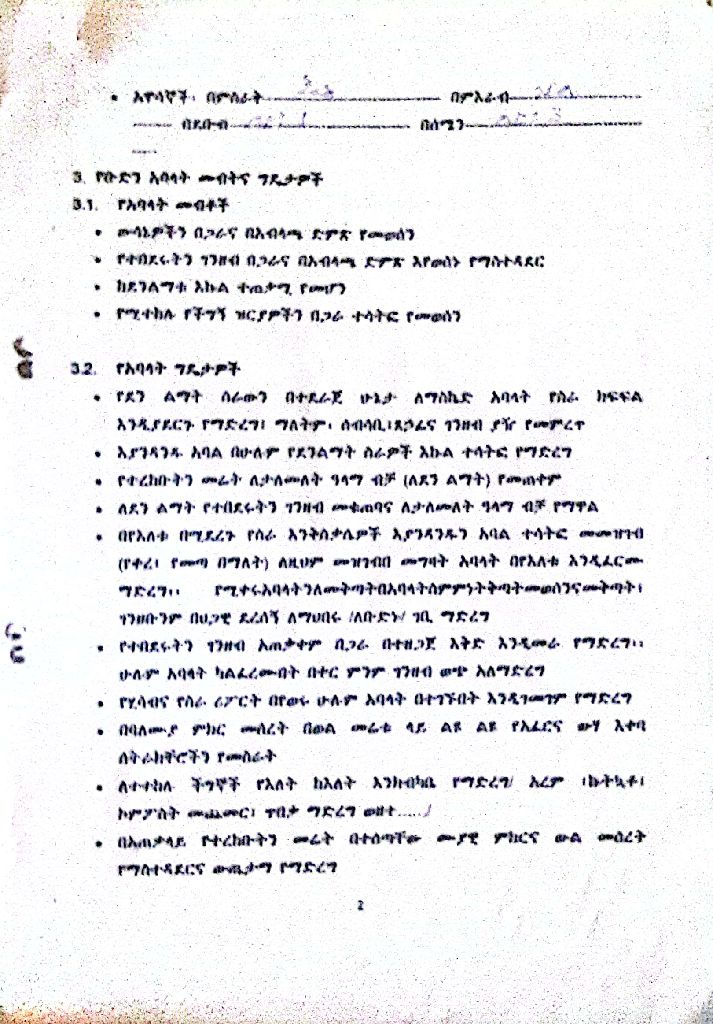 • አዋሳኞች፡ በምስራት በምእራብ
በደቡብ በሰሜን
3. የቡድን አባላት መብትና ግዴታዎች
3.1. የአባላት መብቶች
• ውሳኔዎችን በጋራና በአብላጫ ድምጽ የመወሰን
• የተበደሩትን ገንዘብ በጋራና በአብላጫ ድምጽ እየወሰኑ የማስተዳደር
• ከደንልማቱ እኩል ተጠቃሚ የመሆን
• የሚተከሉ የችግኝ ዝርያዎችን በጋራ ተሳትፎ የመወሰን
3.2. የአባላት ግዴታዎች
• የደን ልማት ስራውን በተደራጀ ሁኔታ ለማስኬድ አባላት የስራ ክፍፍል
እንዲያደርጉ የማድረግ፣ ማለትም፡ ሰብሳቢ፣ጸኃፊና ገንዘብ ያዥ የመምረጥ
• እያንዳንዱ አባል በሁሉም የደንልማት ስራዎች እኩል ተሳትፎ የማድረግ
• የተረከቡትን መሬት ለታለመለት ዓላማ ብቻ (ለደን ልማት) የመጠቀም
• ለደን ልማት የተበደሩትን ገንዘብ መቁጠባና ለታለመለት ዓላማ ብቻ የማዋል
• በየእለቱ በሚደረጉ የስራ እንቅስቃሴዎች እያንዳንዱን አባል ተሳትፎ መመዝገብ
(የቀረ፣ የመጣ በማለት) ለዚህም መዝገብበ መግባት አባላት በየእለቱ እንዲፈርሙ
ማድረግ፡፡ የሚቀሩአባላትንለመቅጣትበአባላትስምምነትቅጣትመወሰንናመቅጣት፣
ገንዘቡንም በህጋዊ ደረሰኝ ለማህበሩ /ለቡድኑ/ ገቢ ማድረግ
• የተበደሩትን ገንዘብ አጠቃቀም በጋራ በተዘጋጀ እቅድ እንዲመራ የማድረግ፡፡
ሁሉም አባላት ካልፈረሙበት በቀር ምንም ገንዘብ ወጭ አለማድረግ
• የሂሳብና የስራ ሪፖርት በየወሩ ሁሉም አባላት በተገኙበት እንዲገመገም የማድረግ
• በባለሙያ ምክር መሰረት በወል መሬቱ ላይ ልዩ ልዩ የአፈርና ውሃ እቀባ
ስትራክቸሮችን የመስራት
• ለተተከሉ ችግኞች የእለት ከእለት እንክብካቤ የማድረግ/ አረም ፣ኩትኳቶ፣
ኮምፖስት መጨመር፣ ጥበቃ ማድረግ ወዘተ....../
• በአጠቃላይ የተረከቡትን መሬት በተሰጣቸው ሙያዊ ምክርና ውል መሰረት
የማስተዳደርና ውጤታማ የማድረግ
2